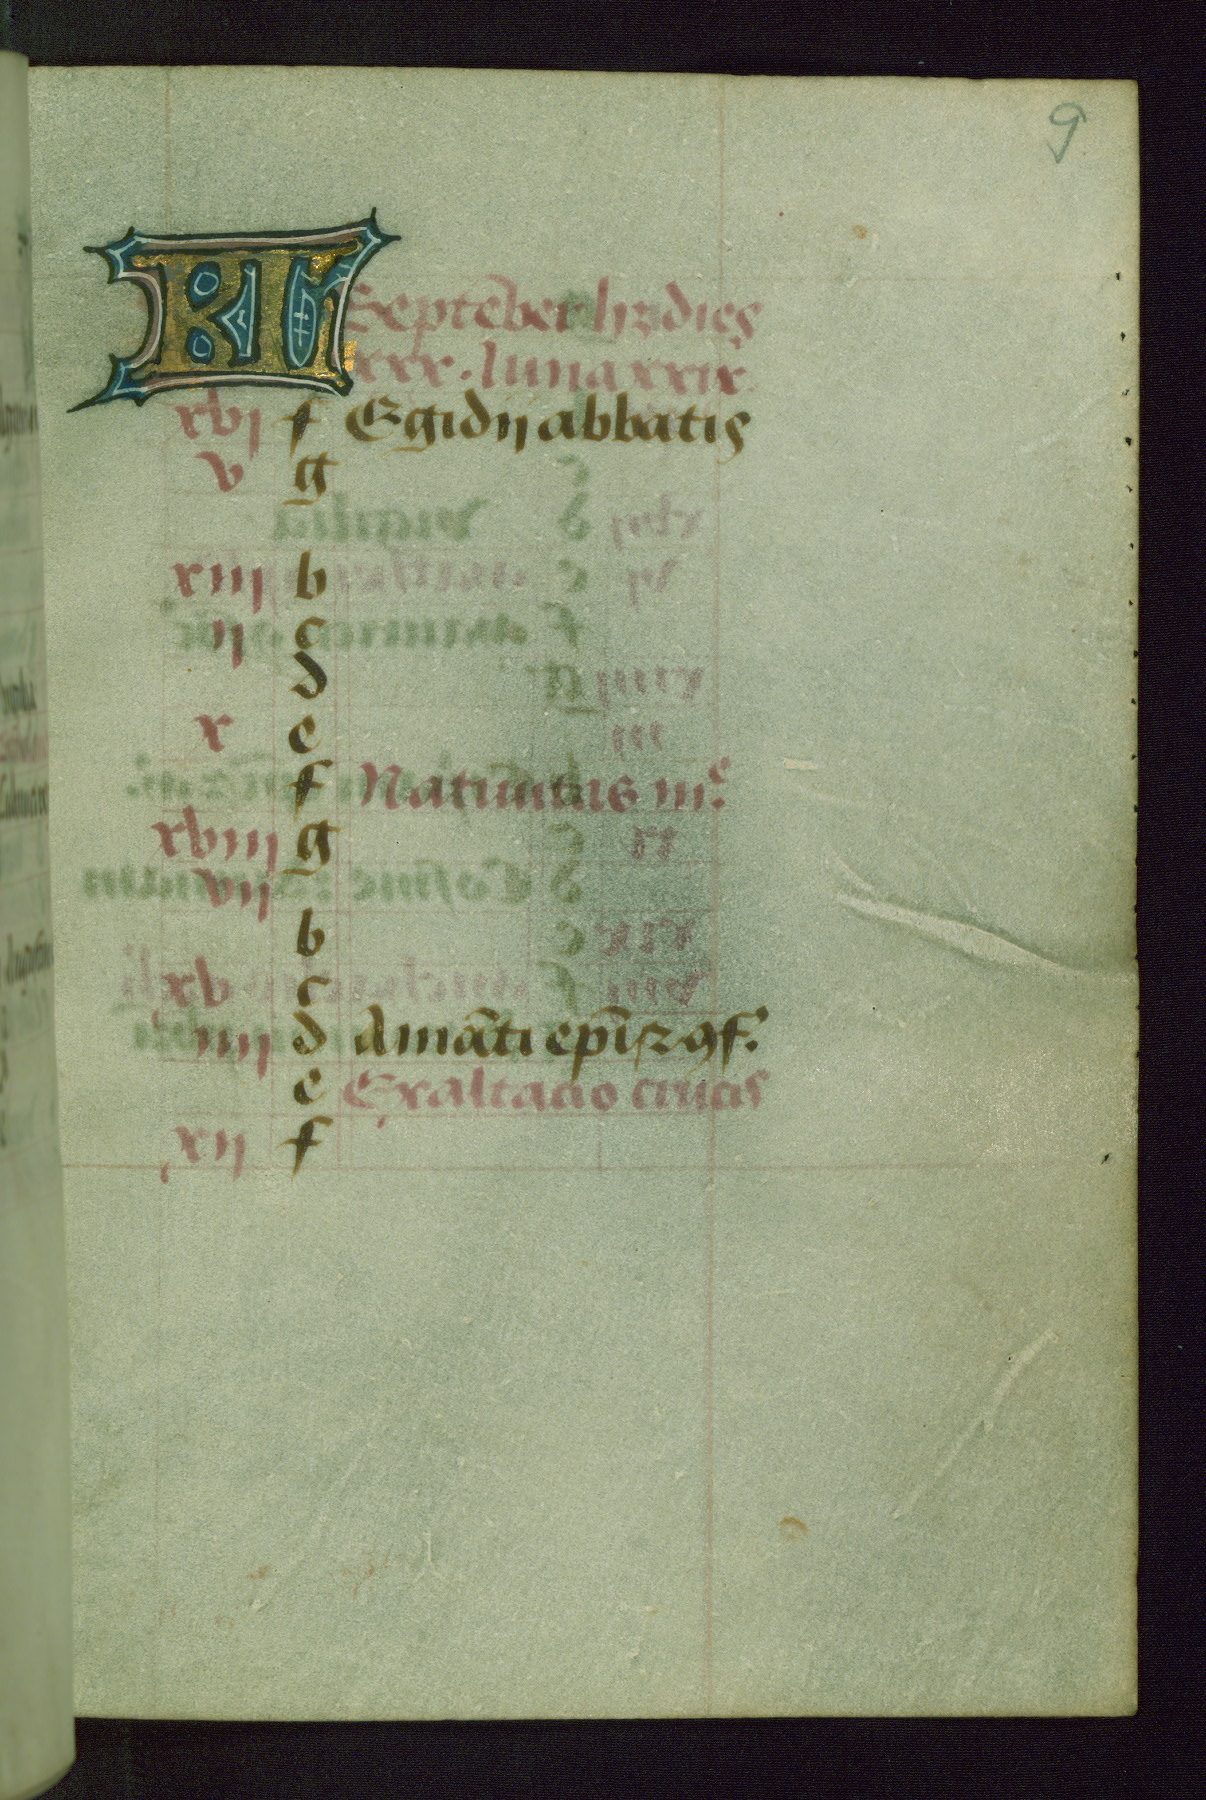 9
KL Septēber hȝ dies
xxx. luna xxix
xvj f Egidij abbatis
v g
xiij b
ij c
d
x e
f Natiuitas m͛.
xviij g
vij
b
xv c
iiij d Amāti epī z ꝯf.
e Exaltatio crucis
xij f